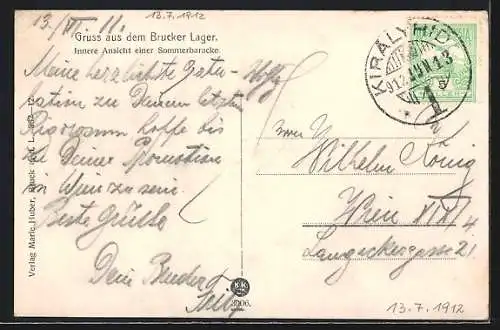 13./VII. 11.
13.7.1912
Gruss aus dem Brucker Lager.
Innere Ansicht einer Sommerbaracke.
Meine herzlichste Gratu-
lation zu Deinem letzten
Rigorosum hoffe bis
zu Deiner Promotion
in Wien zu sein.
Beste Grüße
Dein Bruder
Verlag Marie Huber, Bruck a. d. L.
3006.
KIRÁLYHIDA
Herrn
Wilhelm König
Wien XIII/4
Langeckergasse 21
13.7.1912